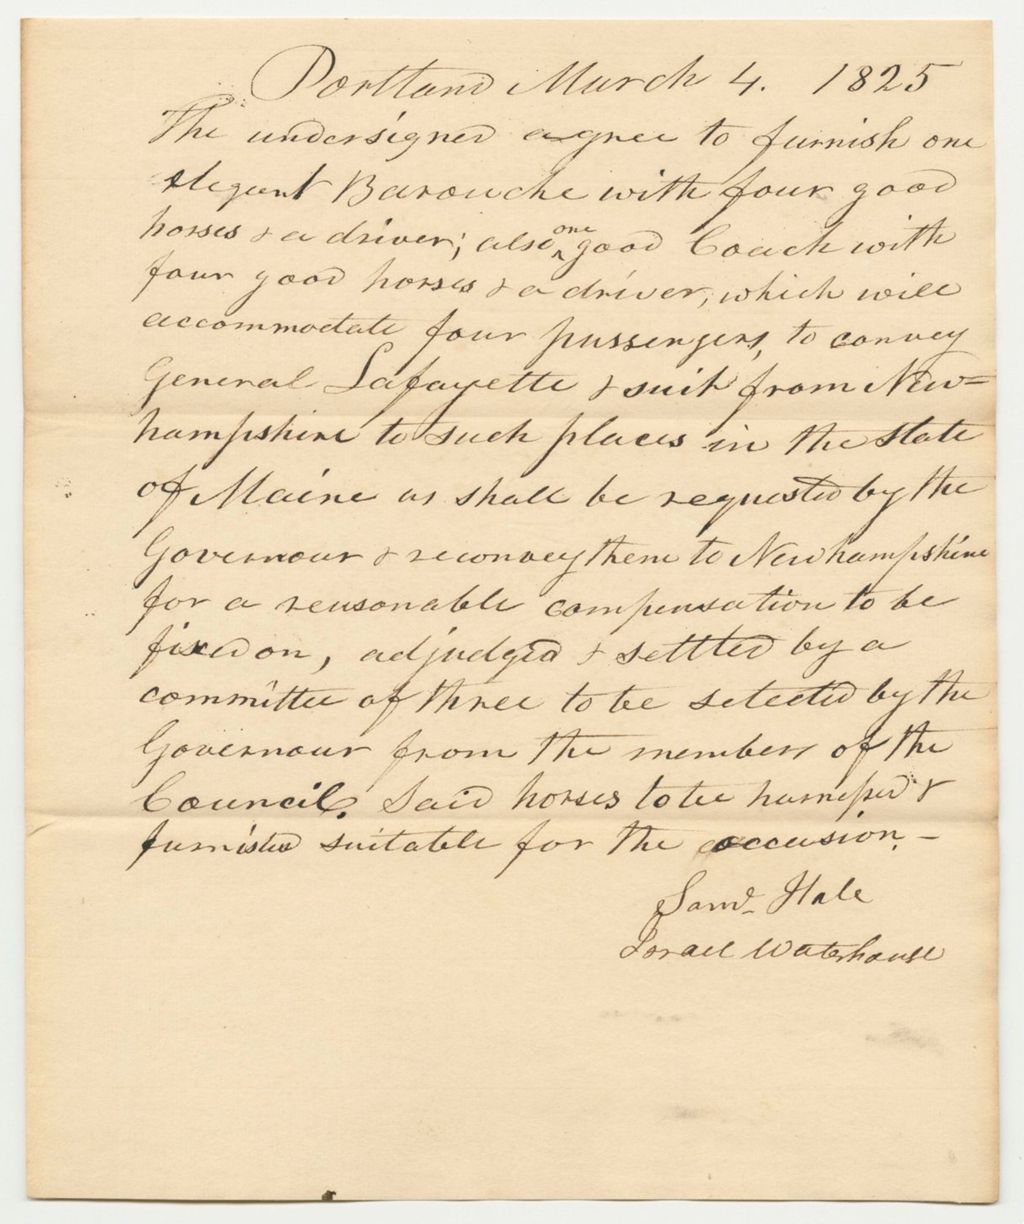 Portland March 4. 1825
The undersigned agree to furnish one
elegant Barouche with four good
horses & a driver; also one good Coach with
four good horses & a driver, which will
accommodate four passengers, to convey
General Lafayette & suit from New=
hampshire to such places in the state
of Maine as shall be requested by the
Governour & reconvey them to Newhampshire
for a reasonable compensation to be
fixed on, adjudged & settled by a
committee of three to be selected by the
Governour from the members of the
Council. Said horses to be harnessed &
furnished suitable for the occasion. —
Saml. Hale
Israel Waterhouse